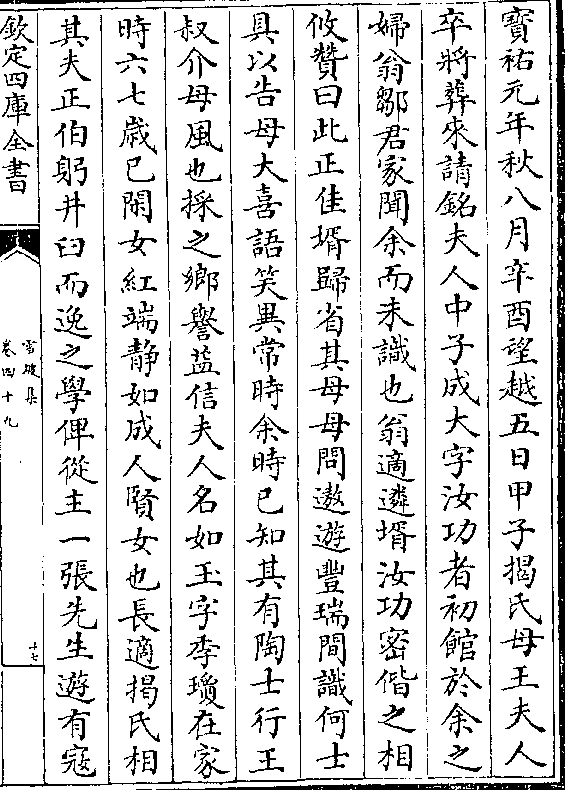 寶祐元年秋八月辛酉望越五日甲子揭氏母王夫人
卒將葬來請銘夫人中子成大字汝功者初館於余之
婦翁鄒君家聞余而未識也翁適遴壻汝功密偕之相
攸贊曰此正佳壻歸省其母母問遨遊豐瑞間識何士
具以告母大喜語笑異常時余時已知其有陶士行王
叔介母風也採之鄉譽益信夫人名如玉字季瓊在家
時六七歳已閑女紅端靜如成人賢女也長適揭氏相
其夫正伯躬井臼而逸之學俾從主一張先生遊有寇
欽定四庫全書
雪坡集
卷四十九
十七